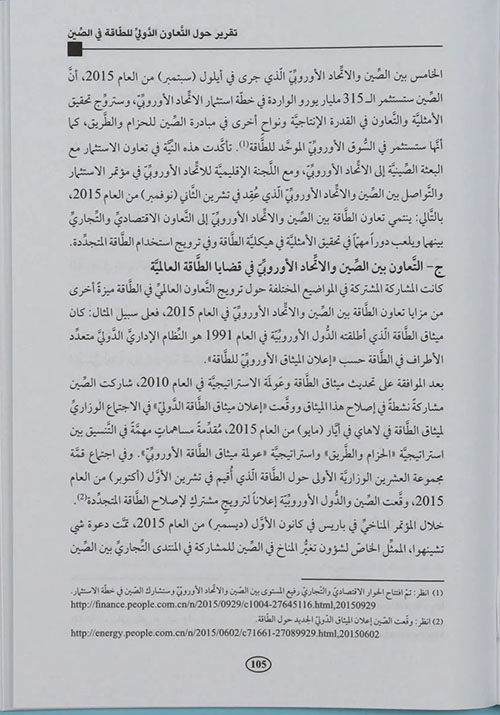 تقرير حول التَّعاون الدَّوليِّ للطَّاقة في الصِّين
الخامس بين الصِّين والاتِّحاد الأوروبيِّ الَّذي جرى في أيلول (سبتمبر) من العام 2015، أنَّ
الصِّين ستستثمر الـ 315 مليار يورو الواردة في خطَّة استثمار الاتِّحاد الأوروبيِّ، وستروِّج تحقيق
الأمثليَّة والتَّعاون في القدرة الإنتاجيَّة ونواحٍ أخرى في مبادرة الصِّين للحزام والطَّريق، كما
أنَّها ستستثمر في السُّوق الأوروبيِّ الموحَّد للطَّاقة(1). تأكَّدت هذه النِّيَّة في تعاون الاستثمار مع
البعثة الصِّينيَّة إلى الاتِّحاد الأوروبيِّ، ومع اللَّجنة الإقليميَّة للاتِّحاد الأوروبيِّ في مؤتمر الاستثمار
والتَّواصل بين الصِّين والاتِّحاد الأوروبيِّ الَّذي عُقِد في تشرين الثَّاني (نوفمبر) من العام 2015،
بالتَّالي: ينتمي تعاون الطَّاقة بين الصِّين والاتِّحاد الأوروبيِّ إلى التَّعاون الاقتصاديِّ والتِّجاريِّ
بينهما ويلعب دوراً مهمّاً في تحقيق الأمثليَّة في هيكليَّة الطَّاقة وفي ترويج استخدام الطَّاقة المتجدِّدة.
ج- التَّعاون بين الصِّين والاتِّحاد الأوروبيِّ في قضايا الطَّاقة العالميَّة
كانت المشاركة المشتركة في المواضيع المختلفة حول ترويج التَّعاون العالميِّ في الطَّاقة ميزةً أخرى
من مزايا تعاون الطَّاقة بين الصِّين والاتِّحاد الأوروبيِّ في العام 2015، فعلى سبيل المثال: كان
ميثاق الطَّاقة الَّذي أطلقته الدُّول الأوروبيَّة في العام 1991 هو النِّظام الإداريَّ الدَّوليَّ متعدِّد
الأطراف في الطَّاقة حسب «إعلان الميثاق الأوروبيِّ للطَّاقة».
بعد الموافقة على تحديث ميثاق الطَّاقة وعَولمة الاستراتيجيَّة في العام 2010، شاركت الصِّين
مشاركةً نشطةً في إصلاح هذا الميثاق ووقَّعت «إعلان ميثاق الطَّاقة الدَّوليِّ» في الاجتماع الوزاريِّ
لميثاق الطَّاقة في لاهاي في أيَّار (مايو) من العام 2015، مُقدِّمةً مساهماتٍ مهمَّة في التَّنسيق بين
استراتيجيَّة «الحزام والطَّريق» واستراتيجيَّة «عولمة ميثاق الطَّاقة الأوروبيِّ». وفي اجتماع قمَّة
مجموعة العشرين الوزاريَّة الأولى حول الطَّاقة الَّذي أُقيم في تشرين الأوَّل (أكتوبر) من العام
2015، وقَّعت الصِّين والدُّول الأوروبيَّة إعلاناً لترويجٍ مشتركٍ لإصلاح الطَّاقة المتجدِّدة(2).
خلال المؤتمر المناخيِّ في باريس في كانون الأوَّل (ديسمبر) من العام 2015، تمَّت دعوة شي
تشينهوا، الممثِّل الخاصِّ لشؤون تغيُّر المناخ في الصِّين للمشاركة في المنتدى التِّجاريِّ بين الصِّين
(1) انظر: تمَّ افتتاح الحوار الاقتصاديِّ والتِّجاريِّ رفيع المستوى بين الصِّين والاتِّحاد الأوروبيِّ وستشارك الصِّين في خطَّة الاستثمار.
http://finance.people.com.cn/n/2015/0929/c1004-27645116.html,20150929
(2) انظر: وقَّعت الصِّين إعلان الميثاق الدَّوليِّ الجديد حول الطَّاقة.
http://energy.people.com.cn/n/2015/0602/c71661-27089929.html,20150602
105